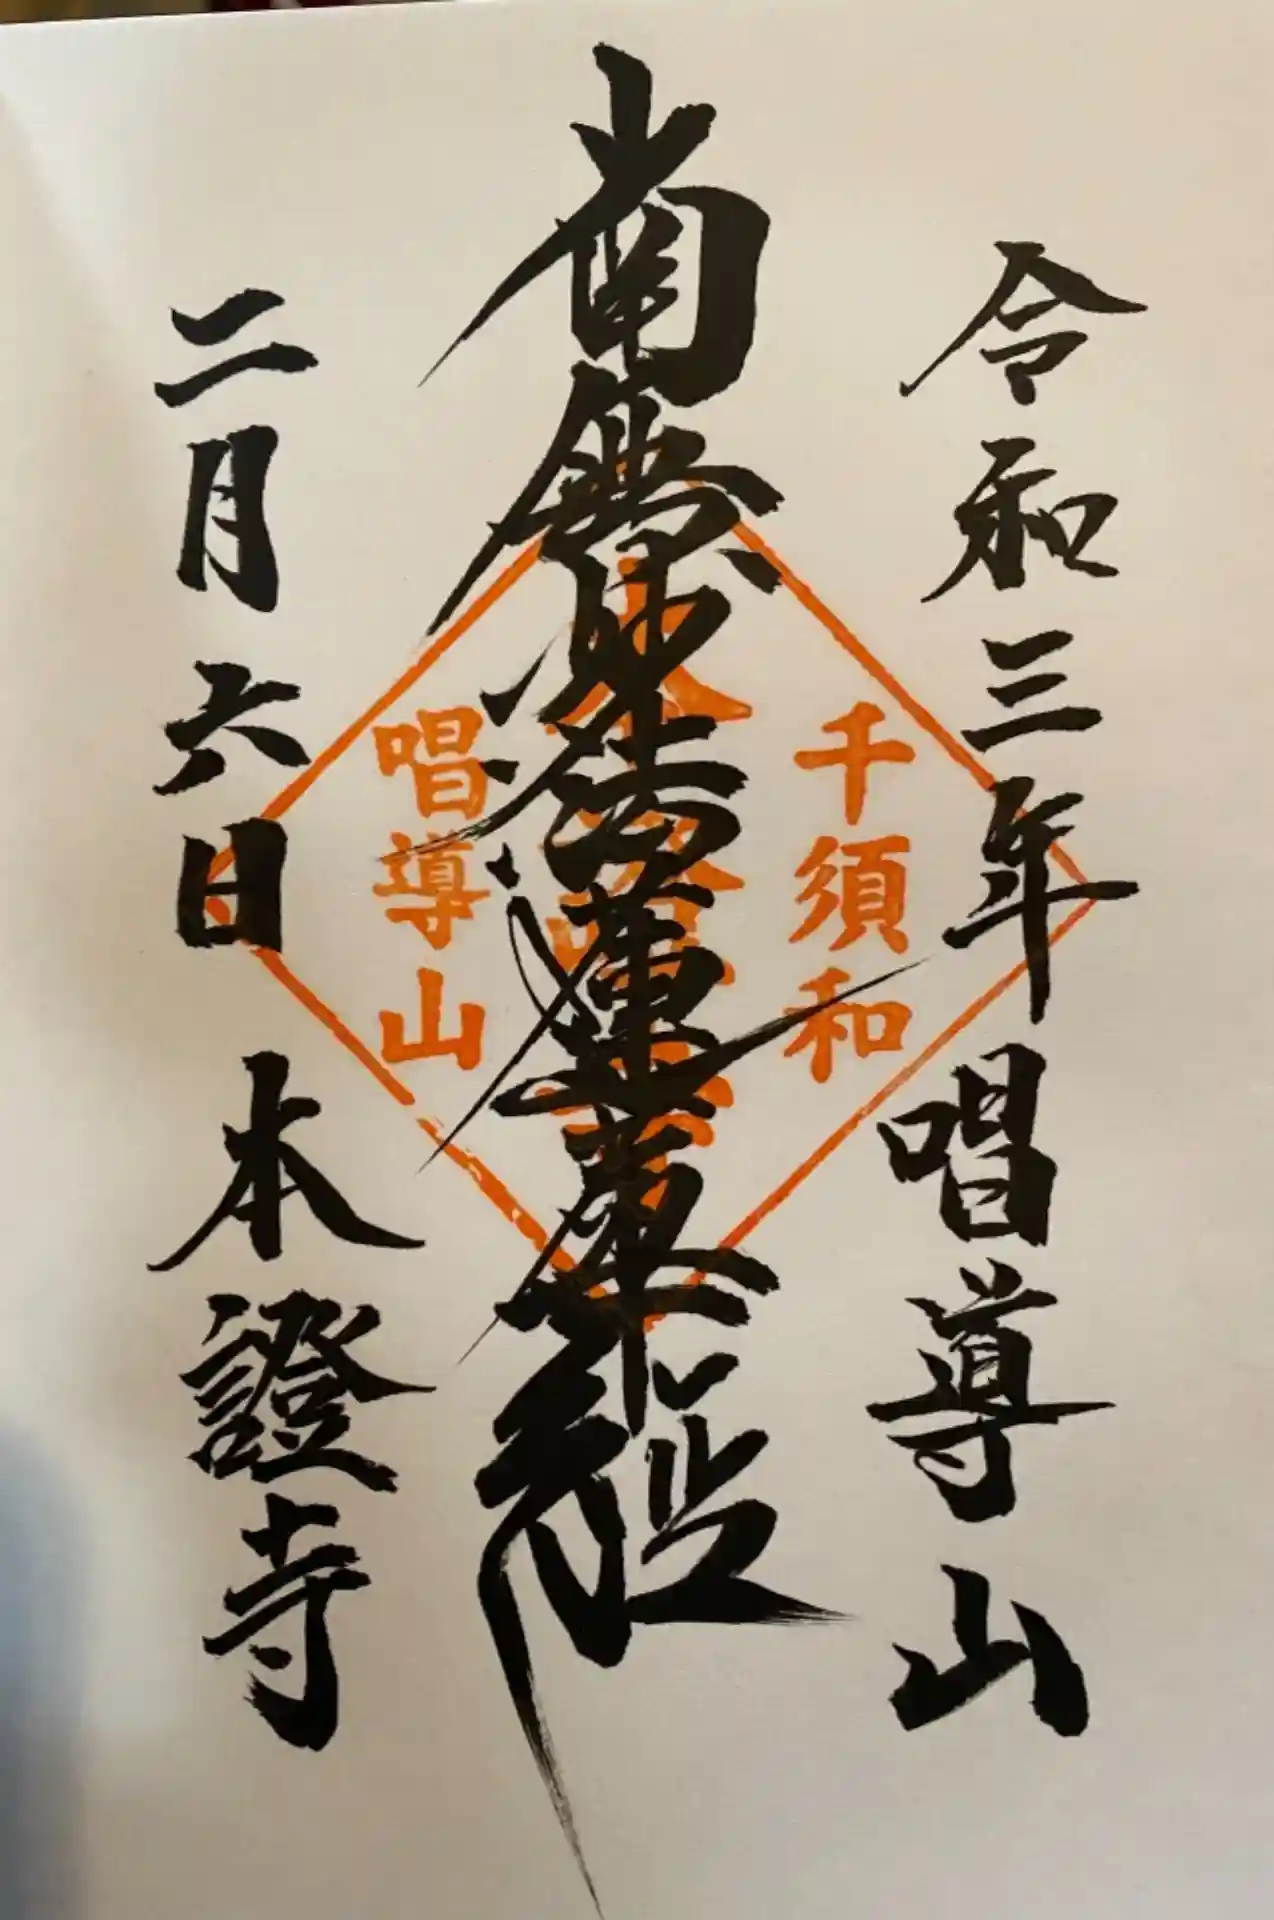 令和三年 唱導山
南無妙法蓮華経
二月六日 本證寺
千須和
本證寺
唱導山